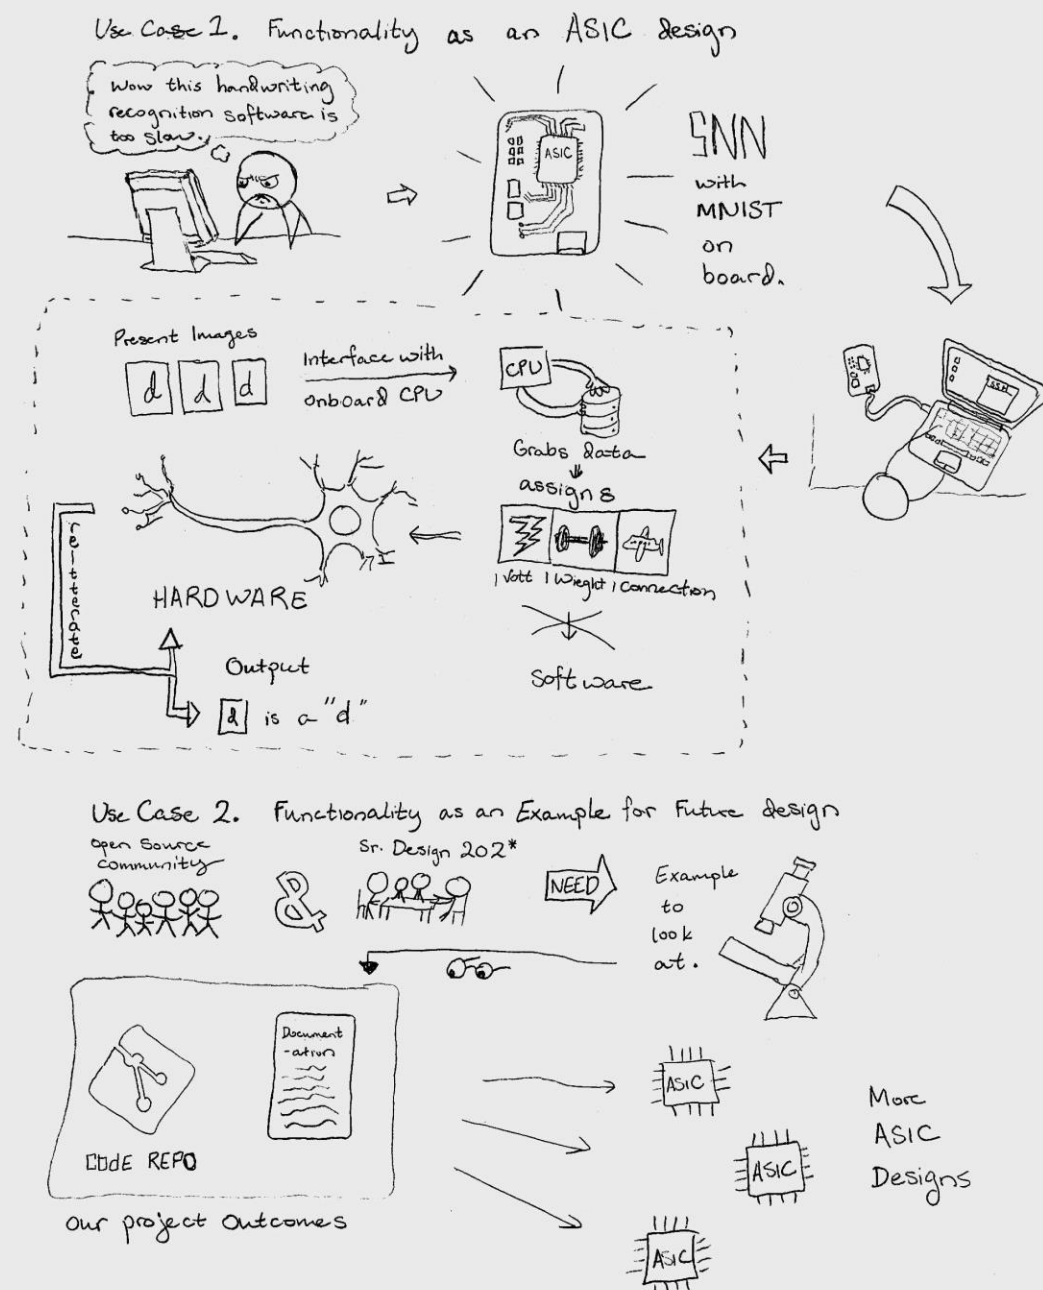 Use Case 1. Functionality as an ASIC design
Wow this handwriting
recognition software is
too slow.
ASIC
SNN
with
MNIST
on
board.
Present Images
d d d
Interface with
onboard CPU
CPU
SSH
Grabs data
assigns
1 Volt 1 Wieght 1 Connection
reitterated
HARDWARE
Software
Output
d is a "d"
Use Case 2. Functionality as an Example for Future design
open Source
community
&
Sr. Design 202*
NEED
Example
to
look
at.
Document
-ation
CODE REPO
our project outcomes
ASIC
ASIC
ASIC
More
ASIC
Designs